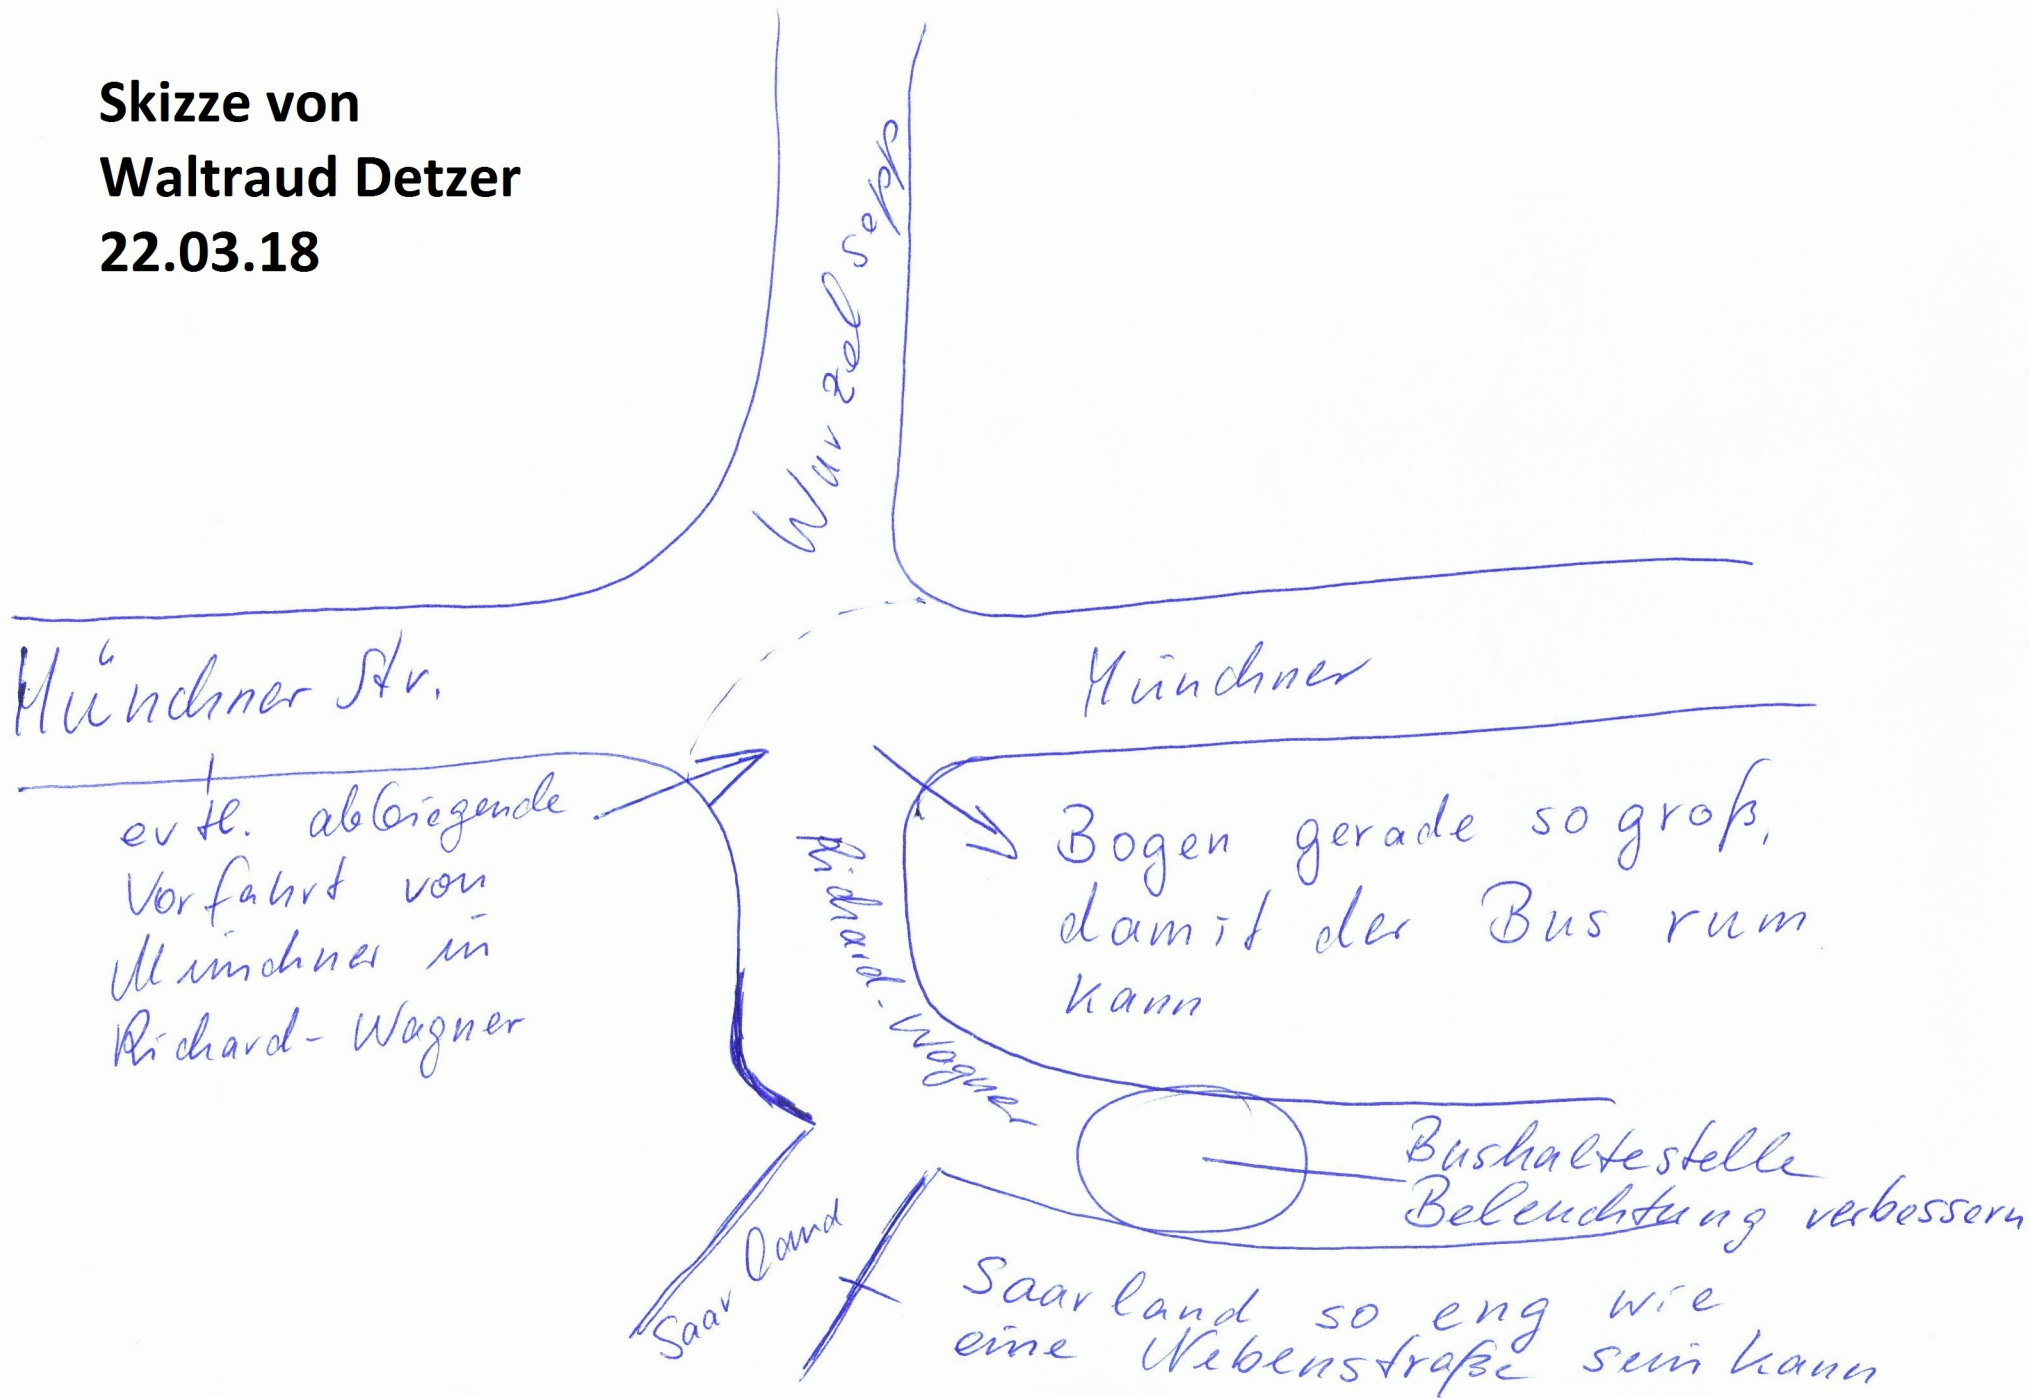 Skizze von
Waltraud Detzer
22.03.18
Wurzelsepp
Münchner Str.
Münchner
evtl. abbiegende
Vorfahrt von
Münchner in
Richard-Wagner
Richard-Wagner
Bogen gerade so groß,
damit der Bus rum
kann
Bushaltestelle
Beleuchtung verbessern
Saarland
Saarland so eng wie
eine Nebenstraße sein kann